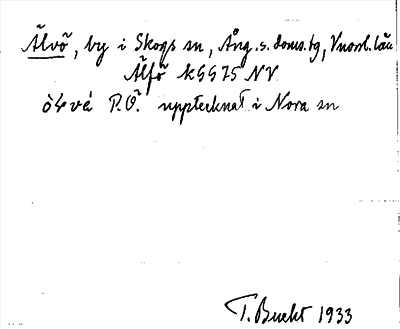 Älvö, by i Skogs sn, Ång. s. doms.tg, Vnorrl. län
Älfö KGG75 NV
P.Ö. upptecknat i Nora sn
T. Bucht 1933